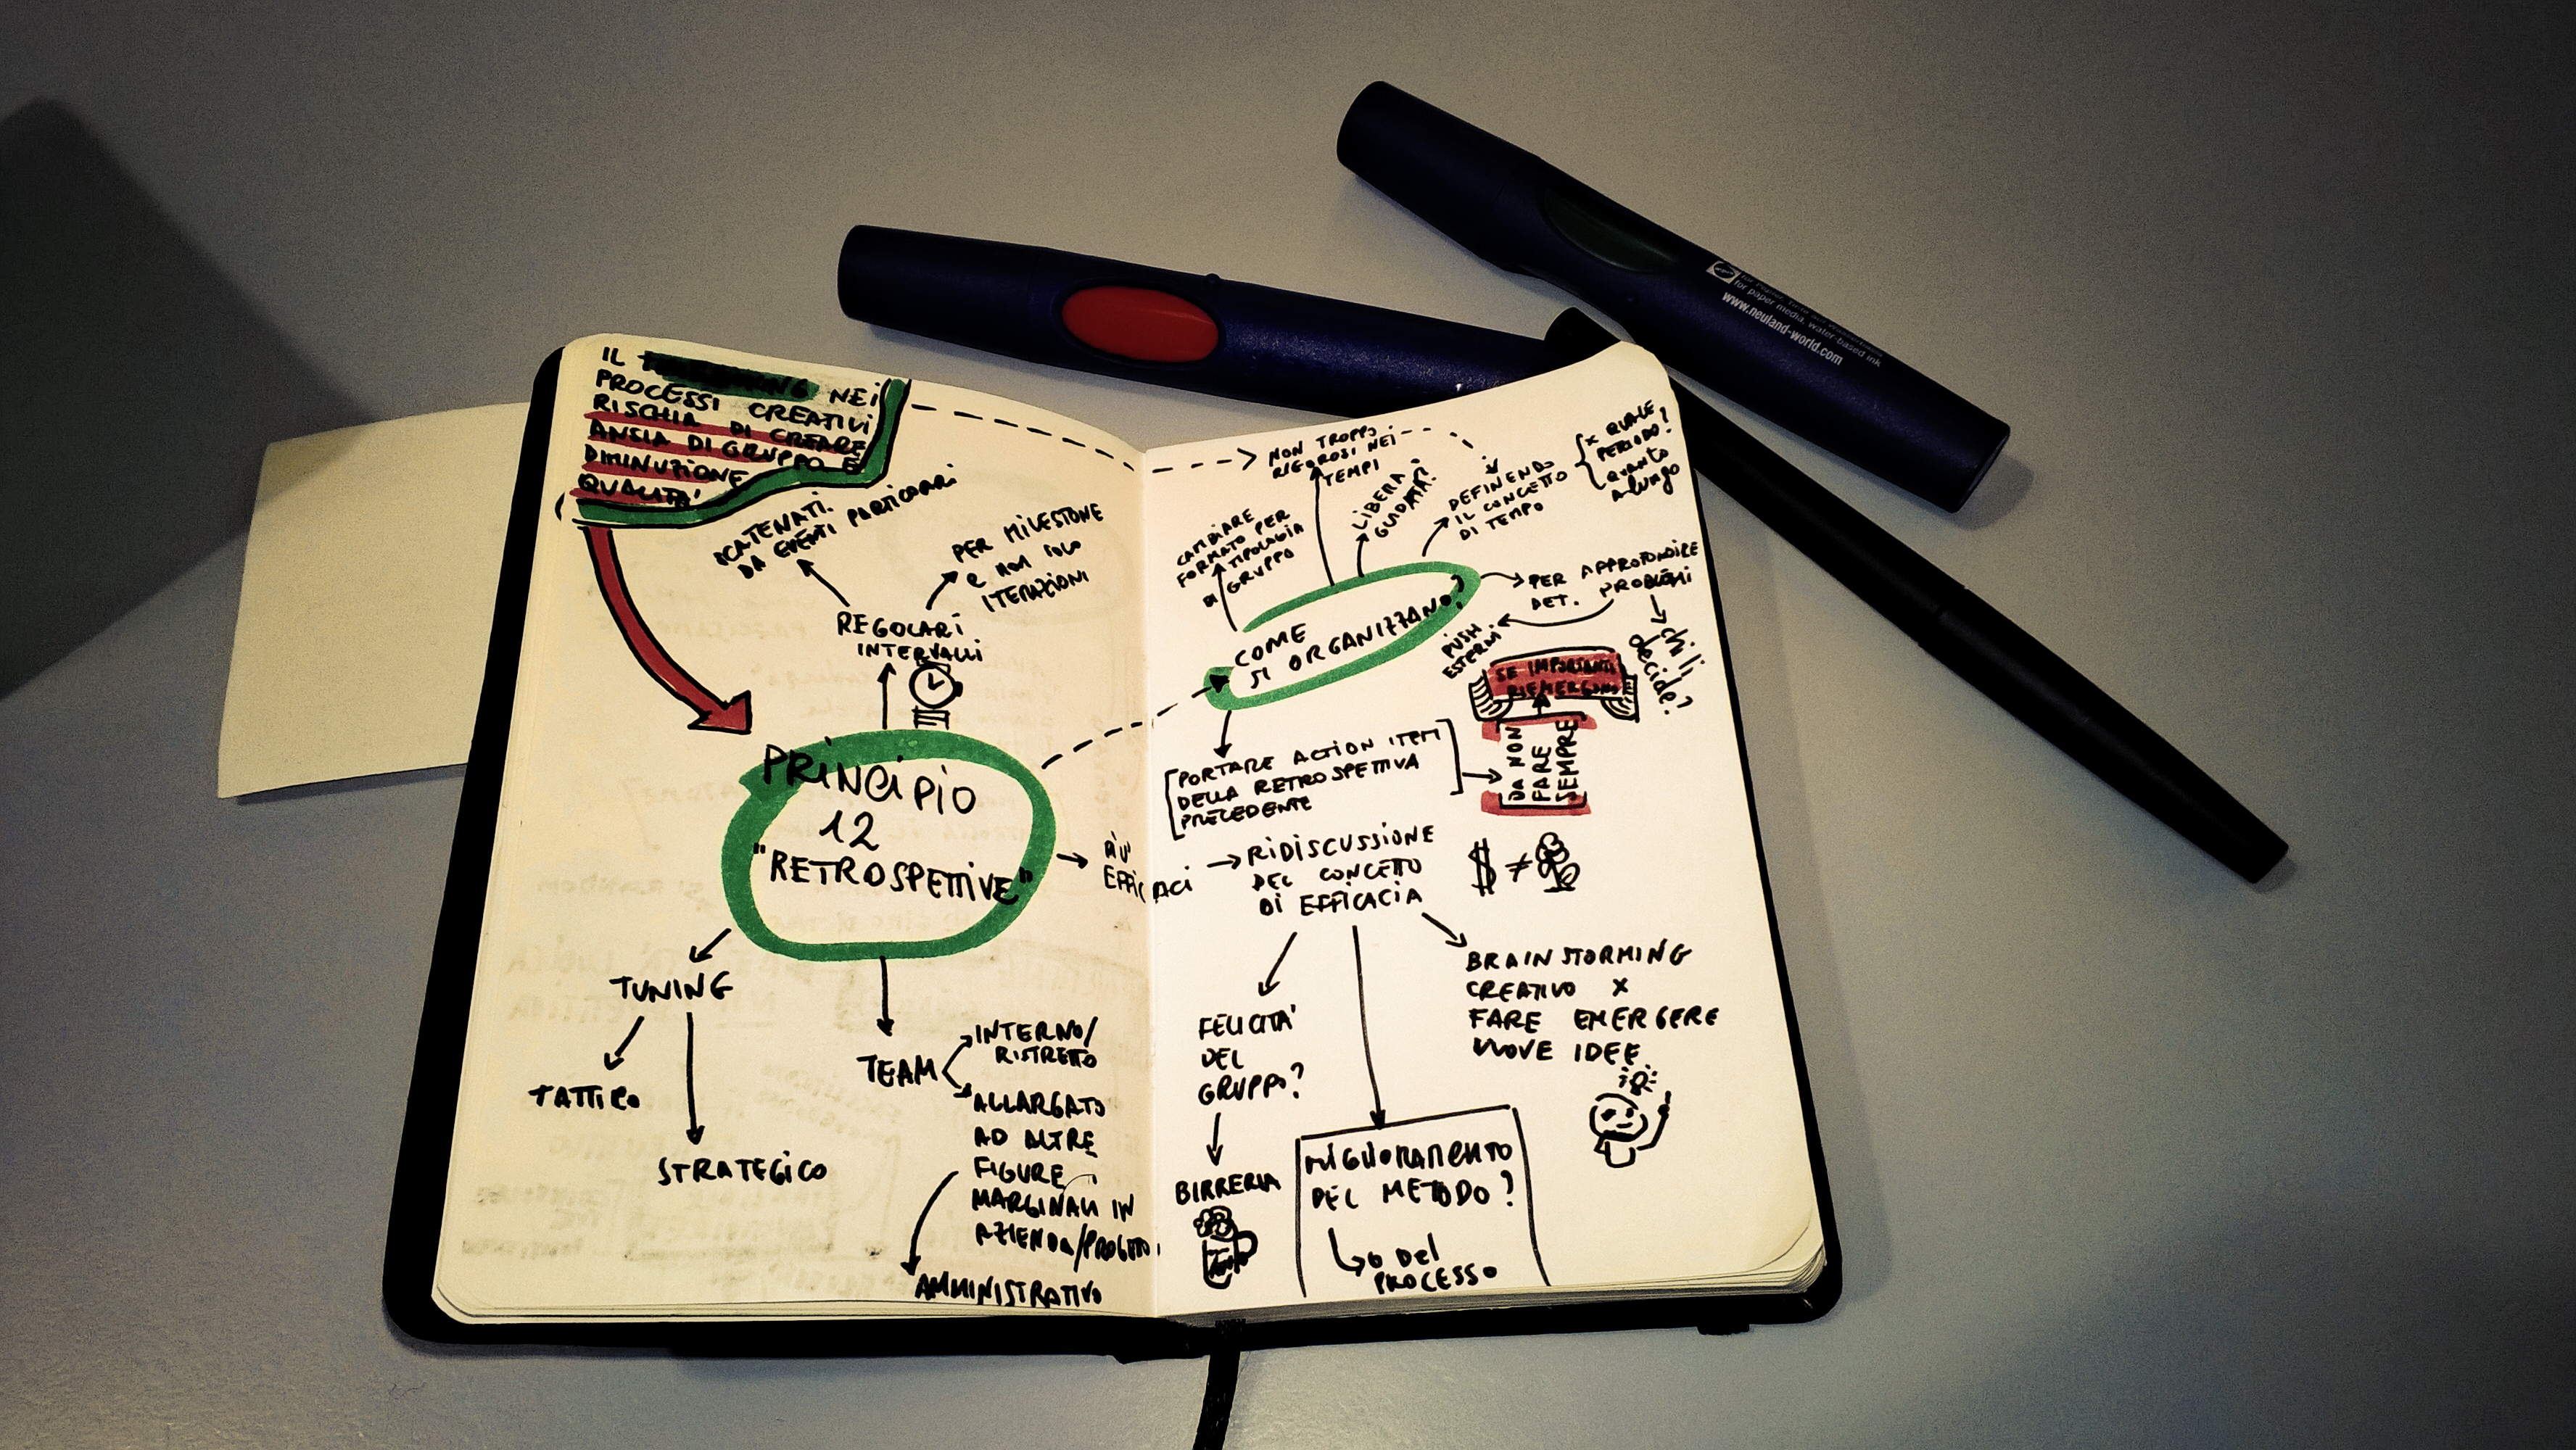 IL NEI
PROCESSI CREATIVI
RISCHIA DI CREARE
ANSIA DI GRUPPO E
DIMINUZIONE
QUALITA'
SCATENATI
DA EVENTI PARTICOLARI
PER MILESTONE
e non solo
ITERAZIONI
REGOLARI
INTERVALLI
PRINCIPIO
12
"RETROSPETTIVE"
TUNING
TATTICO
STRATEGICO
TEAM
INTERNO/
RISTRETTO
ALLARGATO
AD ALTRE
FIGURE
MARGINALI IN
AZIENDA/PROGETTO
AMMINISTRATIVO
PIU'
EFFICACI
NON TROPPO
RIGOROSI NEI
TEMPI
CAMBIARE
FORMATO PER
TIPOLOGIA
DI GRUPPO
LIBERA
GUIDATA?
DEFINENDO
IL CONCETTO
DI TEMPO
X QUALE
PERIODO?
QUANTO
A lungo
COME
SI ORGANIZZANO?
PER APPROFONDIRE
DET. PROBLEMI
PUSH
ESTERNI
chi li
decide?
SE IMPORTANTI
RIEMERGONO
DA NON
FARE
SEMPRE
PORTARE ACTION ITEM
DELLA RETROSPETTIVA
PRECEDENTE
RIDISCUSSIONE
DEL CONCETTO
DI EFFICACIA
$ ≠
FELICITA'
DEL
GRUPPO?
BIRRERIA
MIGLIORAMENTO
DEL METODO?
o Del
PROCESSO
BRAINSTORMING
CREATIVO X
FARE EMERGERE
NUOVE IDEE
for paper media, water-based ink
www.neuland-world.com